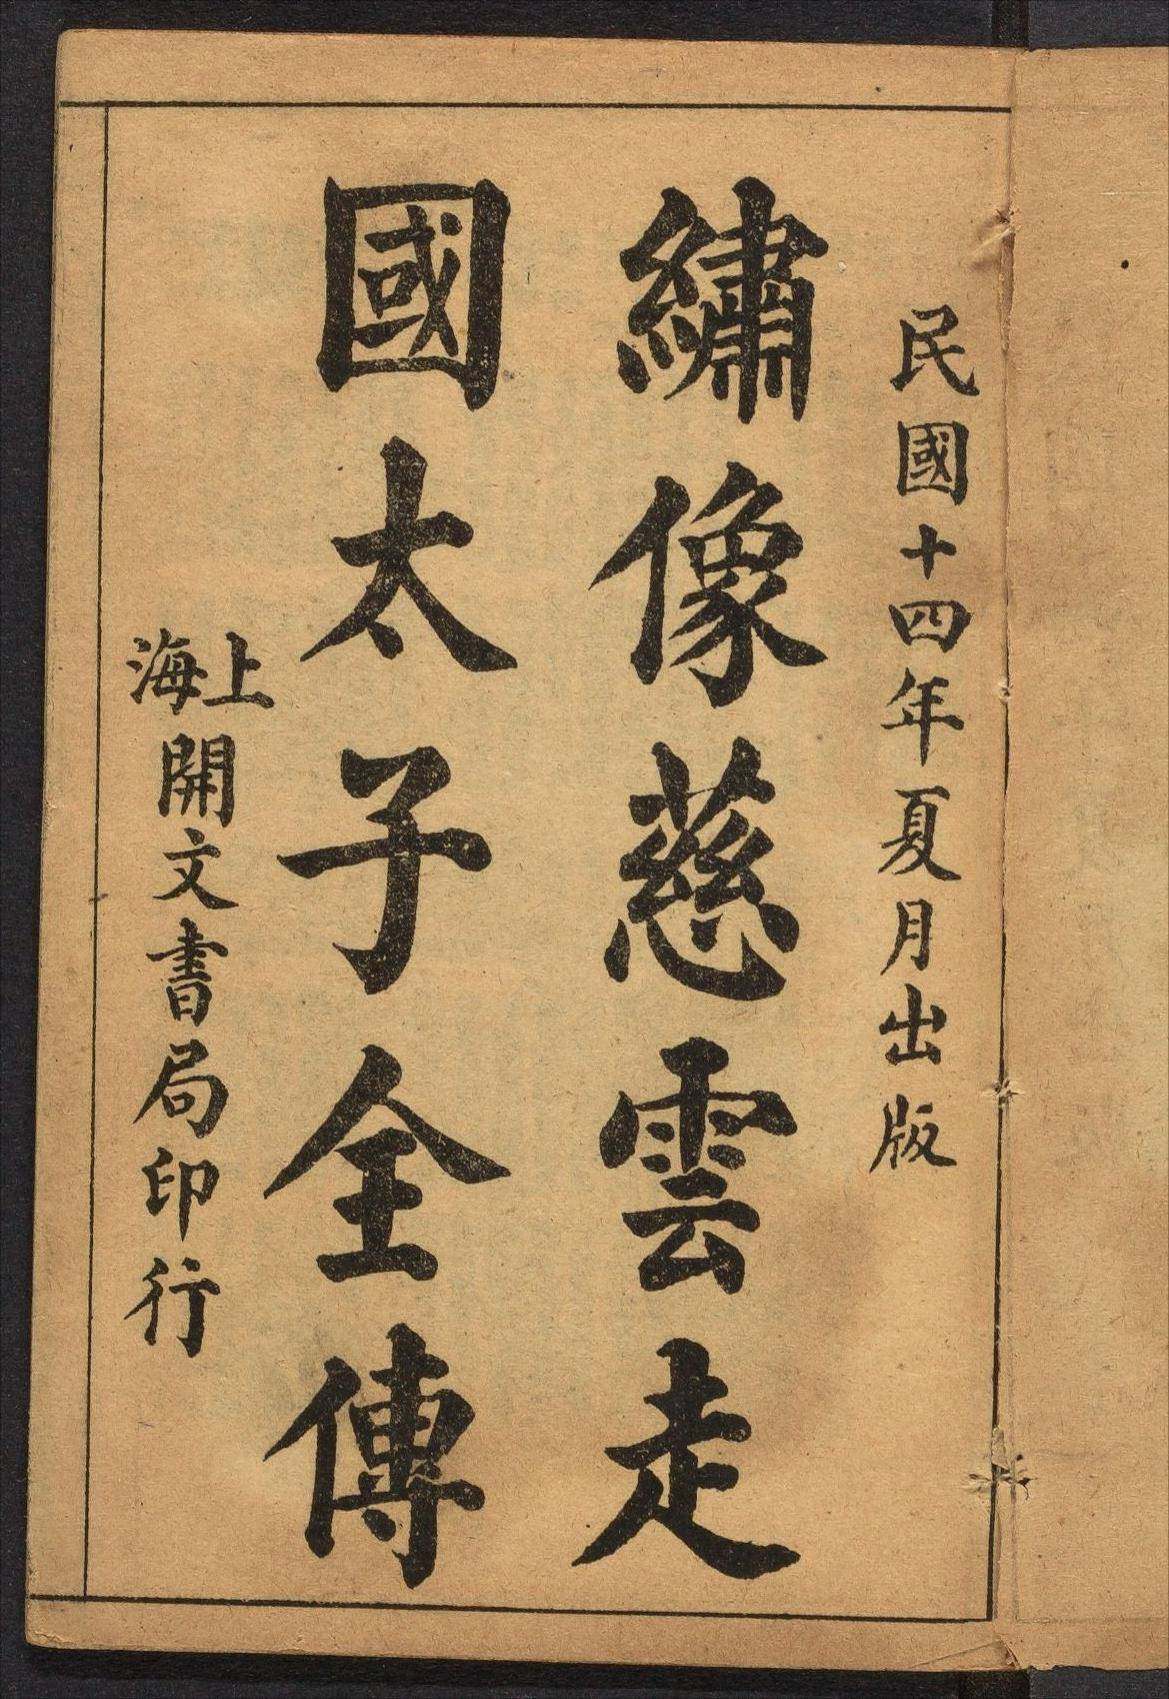 民國十四年夏月出版
繡像慈雲走
國太子全傳
上海開文書局印行